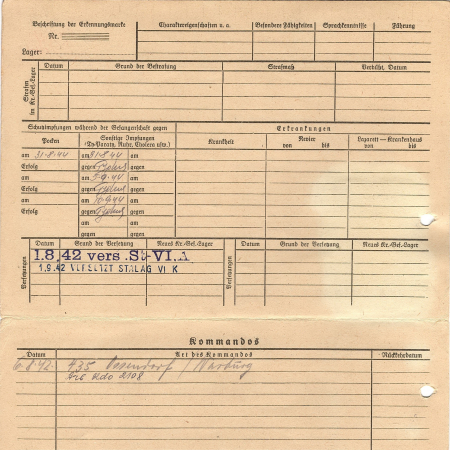 Beschriftung der Erkennungsmarke
Nr.
Lager:
Charaktereigenschaften u. a.
Besondere Fähigkeiten
Sprachkenntnisse
Führung
Strafen im Kr.-Gef.-Lager
Datum Grund der Bestrafung Strafmaß Verbüßt, Datum
Schutzimpfungen während der Gefangenschaft gegen
Erkrankungen
Pocken
Sonstige Impfungen
(Ty-Paraty, Ruhr, Cholera usw.)
Krankheit
Revier
von bis
Lazarett – Krankenhaus
von bis
am 31.8.44 am 31.8.44 am
Erfolg gegen gegen
am am 5.9.44 am
Erfolg gegen gegen
am am 10.9.44 am
Erfolg gegen gegen
am am
gegen gegen
Versetzungen
Datum Grund der Versetzung Neues Kr.-Gef.-Lager
1.8.42 vers. St-VI.A
1.9.42 VERSETZT STALAG VI K
Versetzungen
Datum Grund der Versetzung Neues Kr.-Gef.-Lager
Kommandos
Datum Art des Kommandos Rückkehrdatum
6.8.42. 435
Kdo 2108